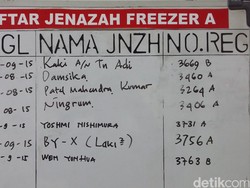 FTAR JENAZAH FREEZER A
GL NAMA JNZH NO.REG
-09-15 Kaki A/N Tn Adi 3669 B
-08-15 Damsika 3460 A
-08-15 Patel Mahendra Kumar 3264 A
-08-15 Ningrum 3406 A
YOSHMI NISHIMURA 3731 A
-09-15 BY-X (Laki2) 3756 A
-9-15 WEN YINHUA 3763 B
detikcom